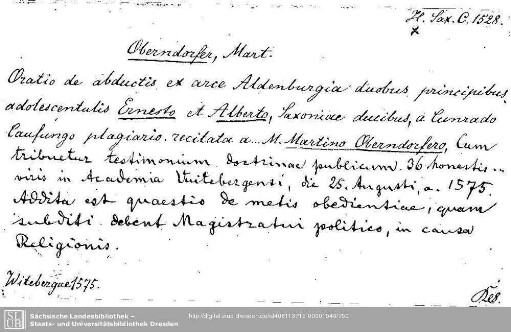 H. Sax. C. 1528.
x
Oberndorfer, Mart.
Oratio de abductis ex arce Aldenburgia duobus principibus
adolescentulis Ernesto et Alberto, Saxoniae ducibus, a Cunrado
Caufungo plagiario. recitata a M. Martino Oberndorfero, Cum
tribuetur testimonium doctrinae publicum 36 honestis
viris in Academia Vuitebergensi, die 25. Augusti, a. 1575.
Addita est quaestio de metis obedientiae, quam
subditi debent Magistratui politico, in causa
Religionis.
Witebergae 1575.
SLUB
Sächsische Landesbibliothek –
Staats- und Universitätsbibliothek Dresden